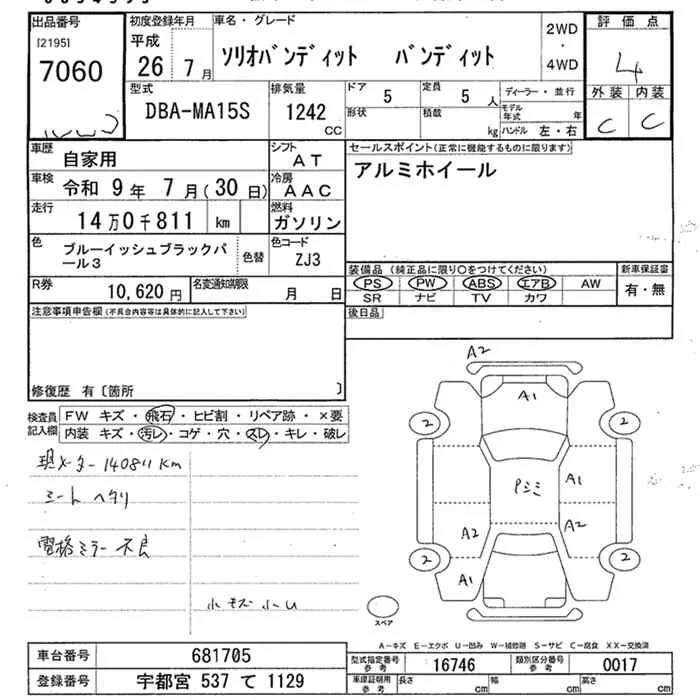 出品番号
[2195]
7060
初度登録年月
平成
26 7月
車名・グレード
ソリオバンディット バンディット
2WD
・
4WD
評価点
4
外装 内装
C C
型式
DBA-MA15S
排気量
1242
CC
ドア
5
定員
5 人
ディーラー・並行
形状
積載
kg
モデル年式 年
ハンドル 左・右
車歴
自家用
シフト
AT
車検
令和 9年 7月(30日)
冷房
AAC
走行
14万0千811 km
燃料
ガソリン
色
ブルーイッシュブラックパール3
色替
色コード
ZJ3
R券
10,620円
名変通知期限
月 日
セールスポイント(正常に機能するものに限ります)
アルミホイール
装備品(純正品に限り○をつけてください)
PS PW ABS エアB AW
SR ナビ TV カワ
新車保証書
有・無
後日品
注意事項申告欄(不具合内容等は具体的に記入して下さい)
修復歴 有〔箇所 〕
検査員記入欄
FW キズ・飛石・ヒビ割・リペア跡・×要
内装 キズ・汚レ・コゲ・穴・スレ・キレ・破レ
現メーター140811km
シートヘタリ
電格ミラー不良
小キズ小U
A2
A1
2 2
Pシミ
A1
A2 A2
2 2
A1
スペア
A-キズ E-エクボ U-凹み W-補修跡 S-サビ C-腐食 XX-交換済
車台番号
681705
登録番号
宇都宮 537 て 1129
型式指定番号参考
16746
類別区分番号参考
0017
車庫証明用参考
長さ cm
幅 cm
高さ cm